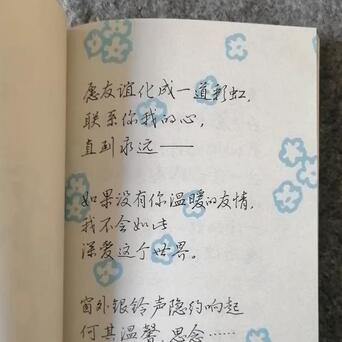 愿友谊化成一道彩虹,
联系你我的心,
直到永远——
如果没有你温暖的友情,
我不会如此
深爱这个世界。
窗外银铃声隐约响起
何其温馨,思念……